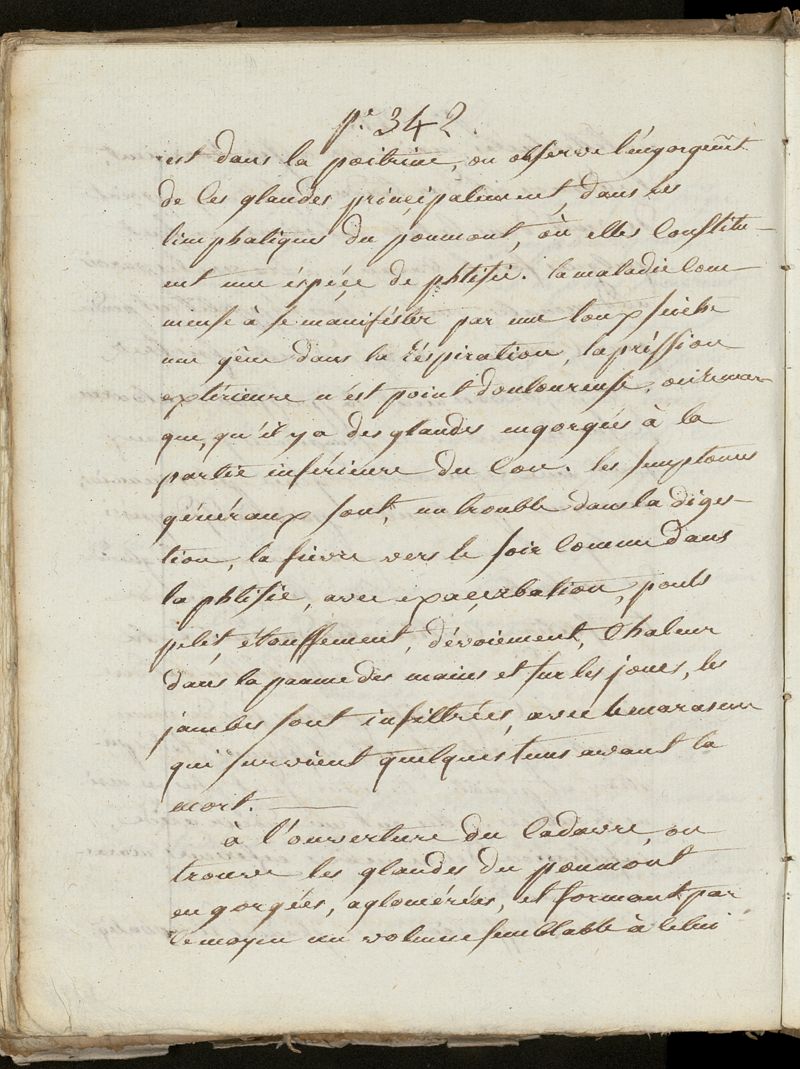 pe. 342.
est dans la poitrine, on observe l'engorgemt
de Ces glandes principalement, dans les
limphatiques du poumont, où elles Constitu-
ent une éspéce de phtisie. la maladie Com-
mense à se manifester par une toux seiche
une gêne dans la réspiration, la préssion
extérieure n'est point douloureuse, on remar-
que, qu'il y a des glandes engorgées à la
partie inférieure du Cou. les simptomes
généraux sont, un trouble dans la diges-
tion, la fievre vers le soir Comme dans
la phtisie, avec exacerbation, pouls
petit étouffement, dévoiement, Chaleur
dans la paume des mains et sur les joues, les
jambes sont infiltrées, avec le marasme
qui survient quelques tems avant la
mort.
à l'ouverture du Cadavre, on
trouve les glandes du poumont
engorgées, aglomérées, et formant par
ce moyen un volume semblable à Celui